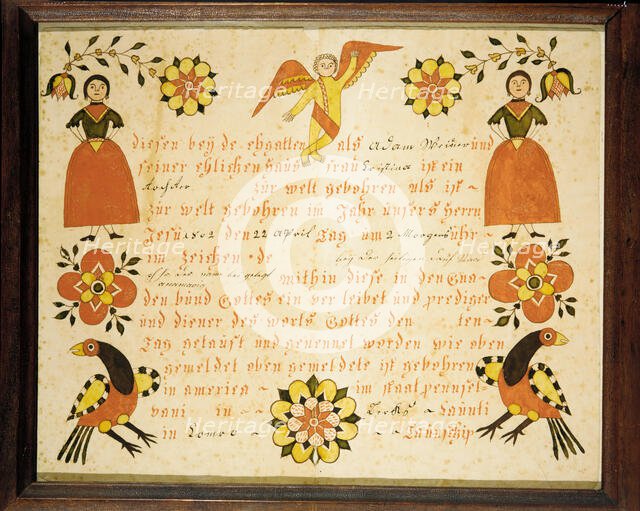 diesen bey de ehgatten als Adam Weiser und
seiner ehlichen haus frau Cristina ist ein
dochter zür welt gebohren als ist
zür welt gebohren im Jahr ünsers herrn
Jesü 1802 den 22 April Tag um 2 Morgens ühr
im zeichen de
mithin diese in den Gna
den bünd Gottes ein ver leibet und prediger
ünd diener des worts Gottes den ten
Tag getauft ünd genennet worden wie oben
gemeldet oben gemeldete ist gebohren
in america im staat pennsel
vani in Berks Caünti
in Taünschip